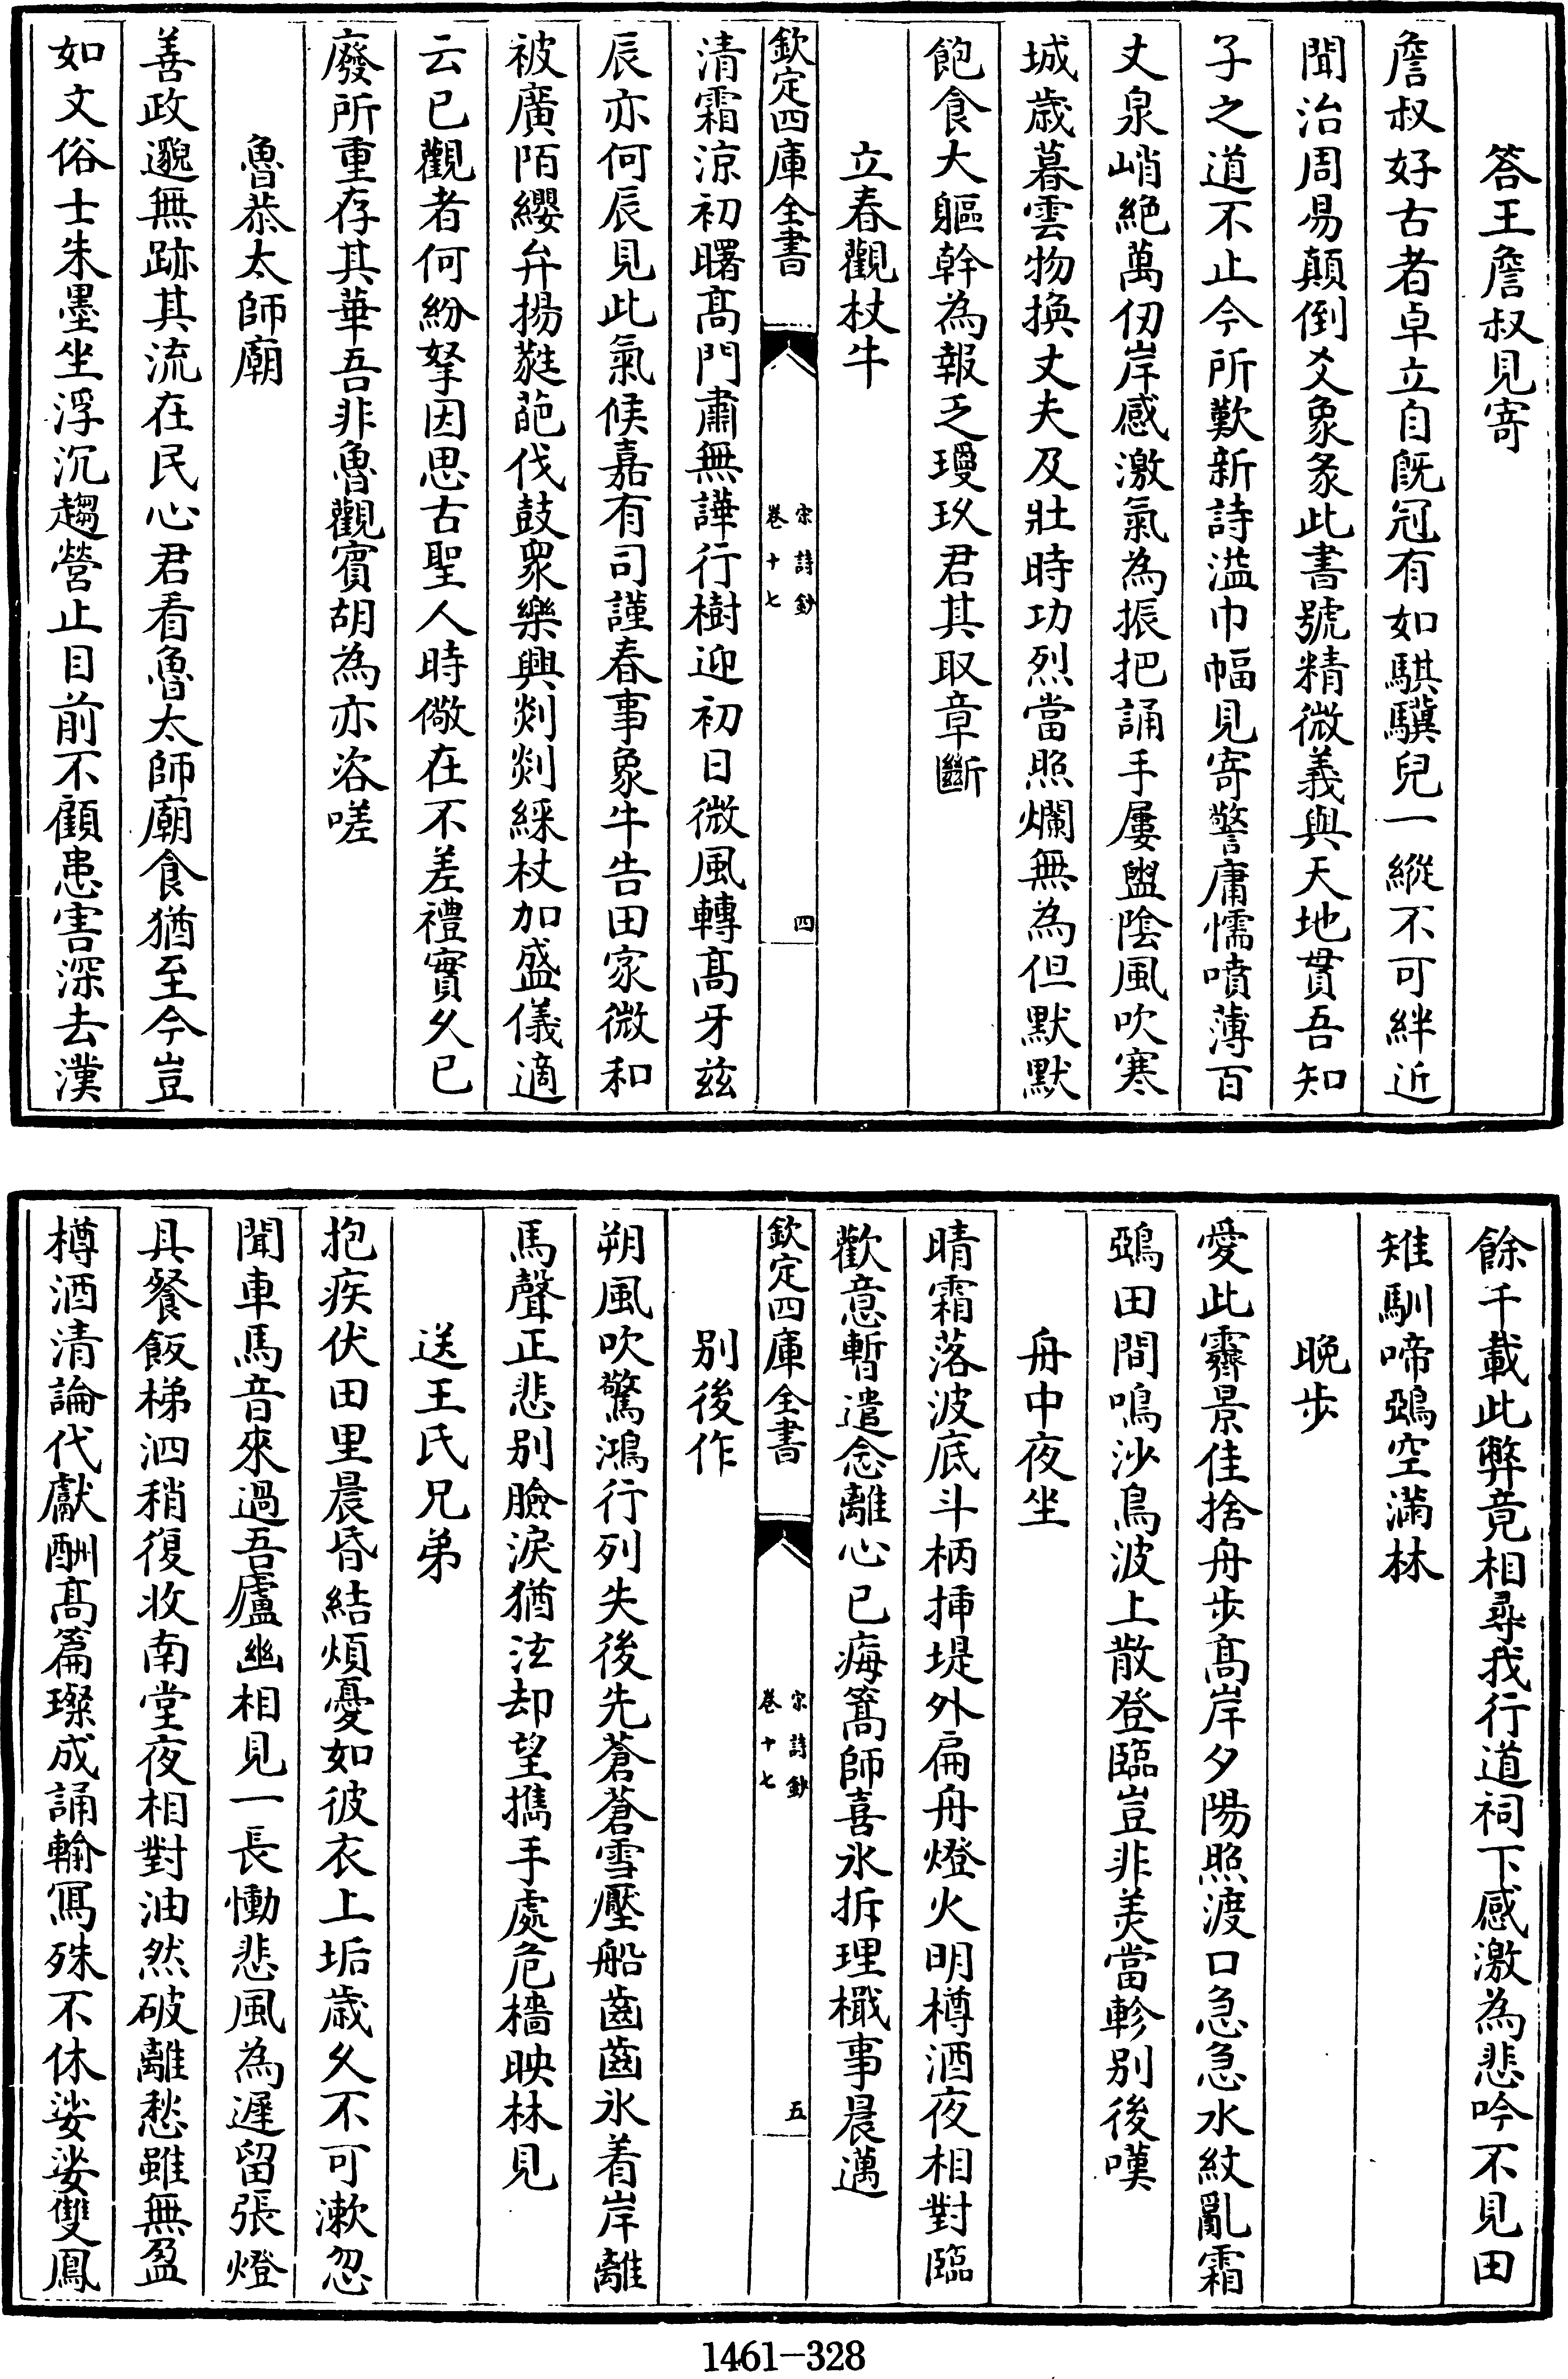 答王詹叔見寄
詹叔好古者卓立自旣冠有如騏驥兒一縱不可絆近
聞治周易顛倒爻象彖此書號精微義與天地貫吾知
子之道不止今所歎新詩溢巾幅見寄警庸懦噴薄百
丈泉峭絶萬仞岸感激氣為振把誦手屢盥陰風吹寒
城歲暮雲物換丈夫及壯時功烈當照爛無為但默默
飽食大軀幹為報乏瓊玖君其取章斷
立春觀杖牛
欽定四庫全書
宋詩鈔
卷十七
四
清霜涼初曙髙門肅無譁行樹迎初日微風轉髙牙兹
辰亦何辰見此氣候嘉有司謹春事象牛告田家微和
被廣陌纓弁揚蕤葩伐鼓衆樂興剡剡綵杖加盛儀適
云已觀者何紛拏因思古聖人時儆在不差禮實久已
廢所重存其華吾非魯觀賓胡為亦咨嗟
魯恭太師廟
善政邈無跡其流在民心君看魯太師廟食猶至今豈
如文俗士朱墨坐浮沉趨營止目前不顧患害深去漢
餘千載此弊竟相尋我行道祠下感激為悲吟不見田
雉馴啼鵶空滿林
晚步
愛此霽景佳捨舟步髙岸夕陽照渡口急急水紋亂霜
鵶田間鳴沙鳥波上散登臨豈非美當軫别後嘆
舟中夜坐
晴霜落波底斗柄揷堤外扁舟燈火明樽酒夜相對臨
歡意暫遣念離心已痗篙師喜氷拆理檝事晨邁
欽定四庫全書
宋詩鈔
卷十七
五
别後作
朔風吹驚鴻行列失後先蒼蒼雪壓船齒齒氷着岸離
馬聲正悲别臉淚猶泫却望攜手處危檣映林見
送王氏兄弟
抱疾伏田里晨昏結煩憂如彼衣上垢歲久不可漱忽
聞車馬音來過吾廬幽相見一長慟悲風為遲留張燈
具餐飯梯泗稍復收南堂夜相對油然破離愁雖無盈
樽酒清論代獻酬髙篇璨成誦輸寫殊不休娑娑雙鳳
1461-328